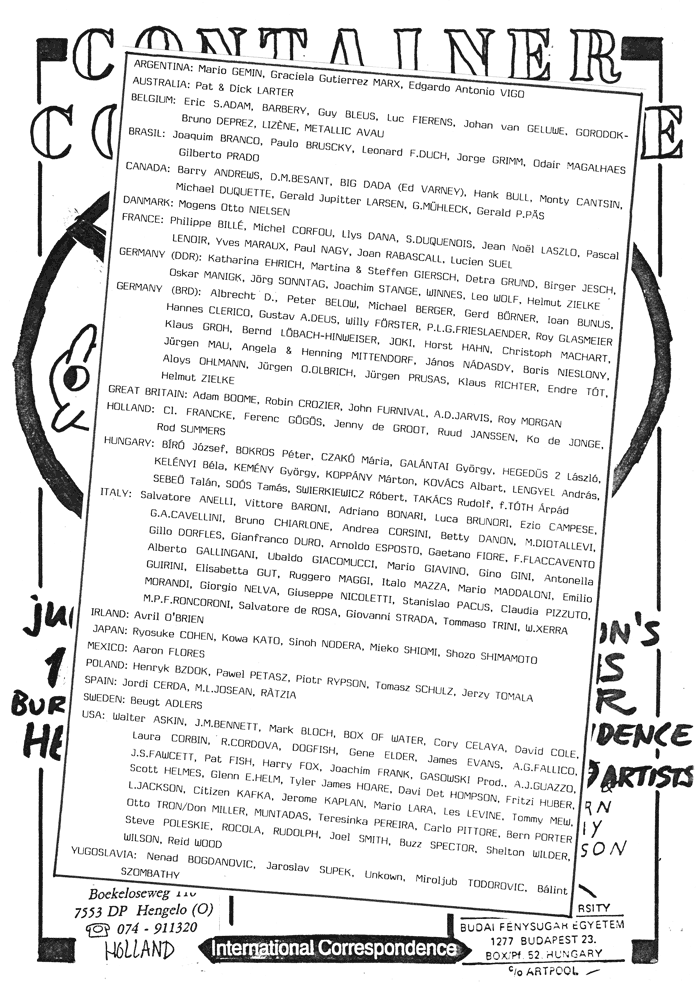 CONTAINER
CO
E
ARGENTINA: Mario GEMIN, Graciela Gutierrez MARX, Edgardo Antonio VIGO
AUSTRALIA: Pat & Dick LARTER
BELGIUM: Eric S.ADAM, BARBERY, Guy BLEUS, Luc FIERENS, Johan van GELUWE, GORODOK-
Bruno DEPREZ, LIZÈNE, METALLIC AVAU
BRASIL: Joaquim BRANCO, Paulo BRUSCKY, Leonard F.DUCH, Jorge GRIMM, Odair MAGALHAES
Gilberto PRADO
CANADA: Barry ANDREWS, D.M.BESANT, BIG DADA (Ed VARNEY), Hank BULL, Monty CANTSIN,
Michael DUQUETTE, Gerald Jupitter LARSEN, G.MÜHLECK, Gerald P.PÄS
DANMARK: Mogens Otto NIELSEN
FRANCE: Philippe BILLÉ, Michel CORFOU, Llys DANA, S.DUQUENOIS, Jean Noël LASZLO, Pascal
LENOIR, Yves MARAUX, Paul NAGY, Joan RABASCALL, Lucien SUEL
GERMANY (DDR): Katharina EHRICH, Martina & Steffen GIERSCH, Detra GRUND, Birger JESCH,
Oskar MANIGK, Jörg SONNTAG, Joachim STANGE, WINNES, Leo WOLF, Helmut ZIELKE
GERMANY (BRD): Albrecht D., Peter BELOW, Michael BERGER, Gerd BÖRNER, Ioan BUNUS,
Hannes CLERICO, Gustav A.DEUS, Willy FÖRSTER, P.L.G.FRIESLAENDER, Roy GLASMEIER
Klaus GROH, Bernd LÖBACH-HINWEISER, JOKI, Horst HAHN, Christoph MACHART,
Jürgen MAU, Angela & Henning MITTENDORF, János NÁDASDY, Boris NIESLONY,
Aloys OHLMANN, Jürgen O.OLBRICH, Jürgen PRUSAS, Klaus RICHTER, Endre TÓT,
Helmut ZIELKE
GREAT BRITAIN: Adam BOOME, Robin CROZIER, John FURNIVAL, A.D.JARVIS, Roy MORGAN
HOLLAND: CI. FRANCKE, Ferenc GÖGÖS, Jenny de GROOT, Ruud JANSSEN, Ko de JONGE,
Rod SUMMERS
HUNGARY: BÍRÓ József, BOKROS Péter, CZAKÓ Mária, GALÁNTAI György, HEGEDŰS 2 László,
KELÉNYI Béla, KEMÉNY György, KOPPÁNY Márton, KOVÁCS Albert, LENGYEL András,
SEBEŐ Talán, SOÓS Tamás, SWIERKIEWICZ Róbert, TAKÁCS Rudolf, f.TÓTH Árpád
ITALY: Salvatore ANELLI, Vittore BARONI, Adriano BONARI, Luca BRUNORI, Ezio CAMPESE,
G.A.CAVELLINI, Bruno CHIARLONE, Andrea CORSINI, Betty DANON, M.DIOTALLEVI,
Gillo DORFLES, Gianfranco DURO, Arnoldo ESPOSTO, Gaetano FIORE, F.FLACCAVENTO
Alberto GALLINGANI, Ubaldo GIACOMUCCI, Mario GIAVINO, Gino GINI, Antonella
GUIRINI, Elisabetta GUT, Ruggero MAGGI, Italo MAZZA, Mario MADDALONI, Emilio
MORANDI, Giorgio NELVA, Giuseppe NICOLETTI, Stanislao PACUS, Claudia PIZZUTO,
M.P.F.RONCORONI, Salvatore de ROSA, Giovanni STRADA, Tommaso TRINI, W.XERRA
IRLAND: Avril O'BRIEN
JAPAN: Ryosuke COHEN, Kowa KATO, Sinoh NODERA, Mieko SHIOMI, Shozo SHIMAMOTO
MEXICO: Aaron FLORES
POLAND: Henryk BZDOK, Pawel PETASZ, Piotr RYPSON, Tomasz SCHULZ, Jerzy TOMALA
SPAIN: Jordi CERDA, M.L.JOSEAN, RÀTZIA
SWEDEN: Beugt ADLERS
USA: Walter ASKIN, J.M.BENNETT, Mark BLOCH, BOX OF WATER, Cory CELAYA, David COLE,
Laura CORBIN, R.CORDOVA, DOGFISH, Gene ELDER, James EVANS, A.G.FALLICO,
J.S.FAWCETT, Pat FISH, Harry FOX, Joachim FRANK, GASOWSKI Prod., A.J.GUAZZO,
Scott HELMES, Glenn E.HELM, Tyler James HOARE, Davi Det HOMPSON, Fritzi HUBER,
L.JACKSON, Citizen KAFKA, Jerome KAPLAN, Mario LARA, Les LEVINE, Tommy MEW,
Otto TRON/Don MILLER, MUNTADAS, Teresinka PEREIRA, Carlo PITTORE, Bern PORTER
Steve POLESKIE, ROCOLA, RUDOLPH, Joel SMITH, Buzz SPECTOR, Shelton WILDER,
WILSON, Reid WOOD
YUGOSLAVIA: Nenad BOGDANOVIC, Jaroslav SUPEK, Unkown, Miroljub TODOROVIC, Bálint
SZOMBATHY
ju
1
BUR
HE
ON'S
IS
R
IDENCE
ARTISTS
&
RN
Y
SON
Boekeloseweg
7553 DP Hengelo (O)
074 - 911320
HOLLAND
International Correspondence
RSITY
BUDAI FENYSUGAR EGYETEM
1277 BUDAPEST 23.
BOX/Pf. 52. HUNGARY
c/o ARTPOOL